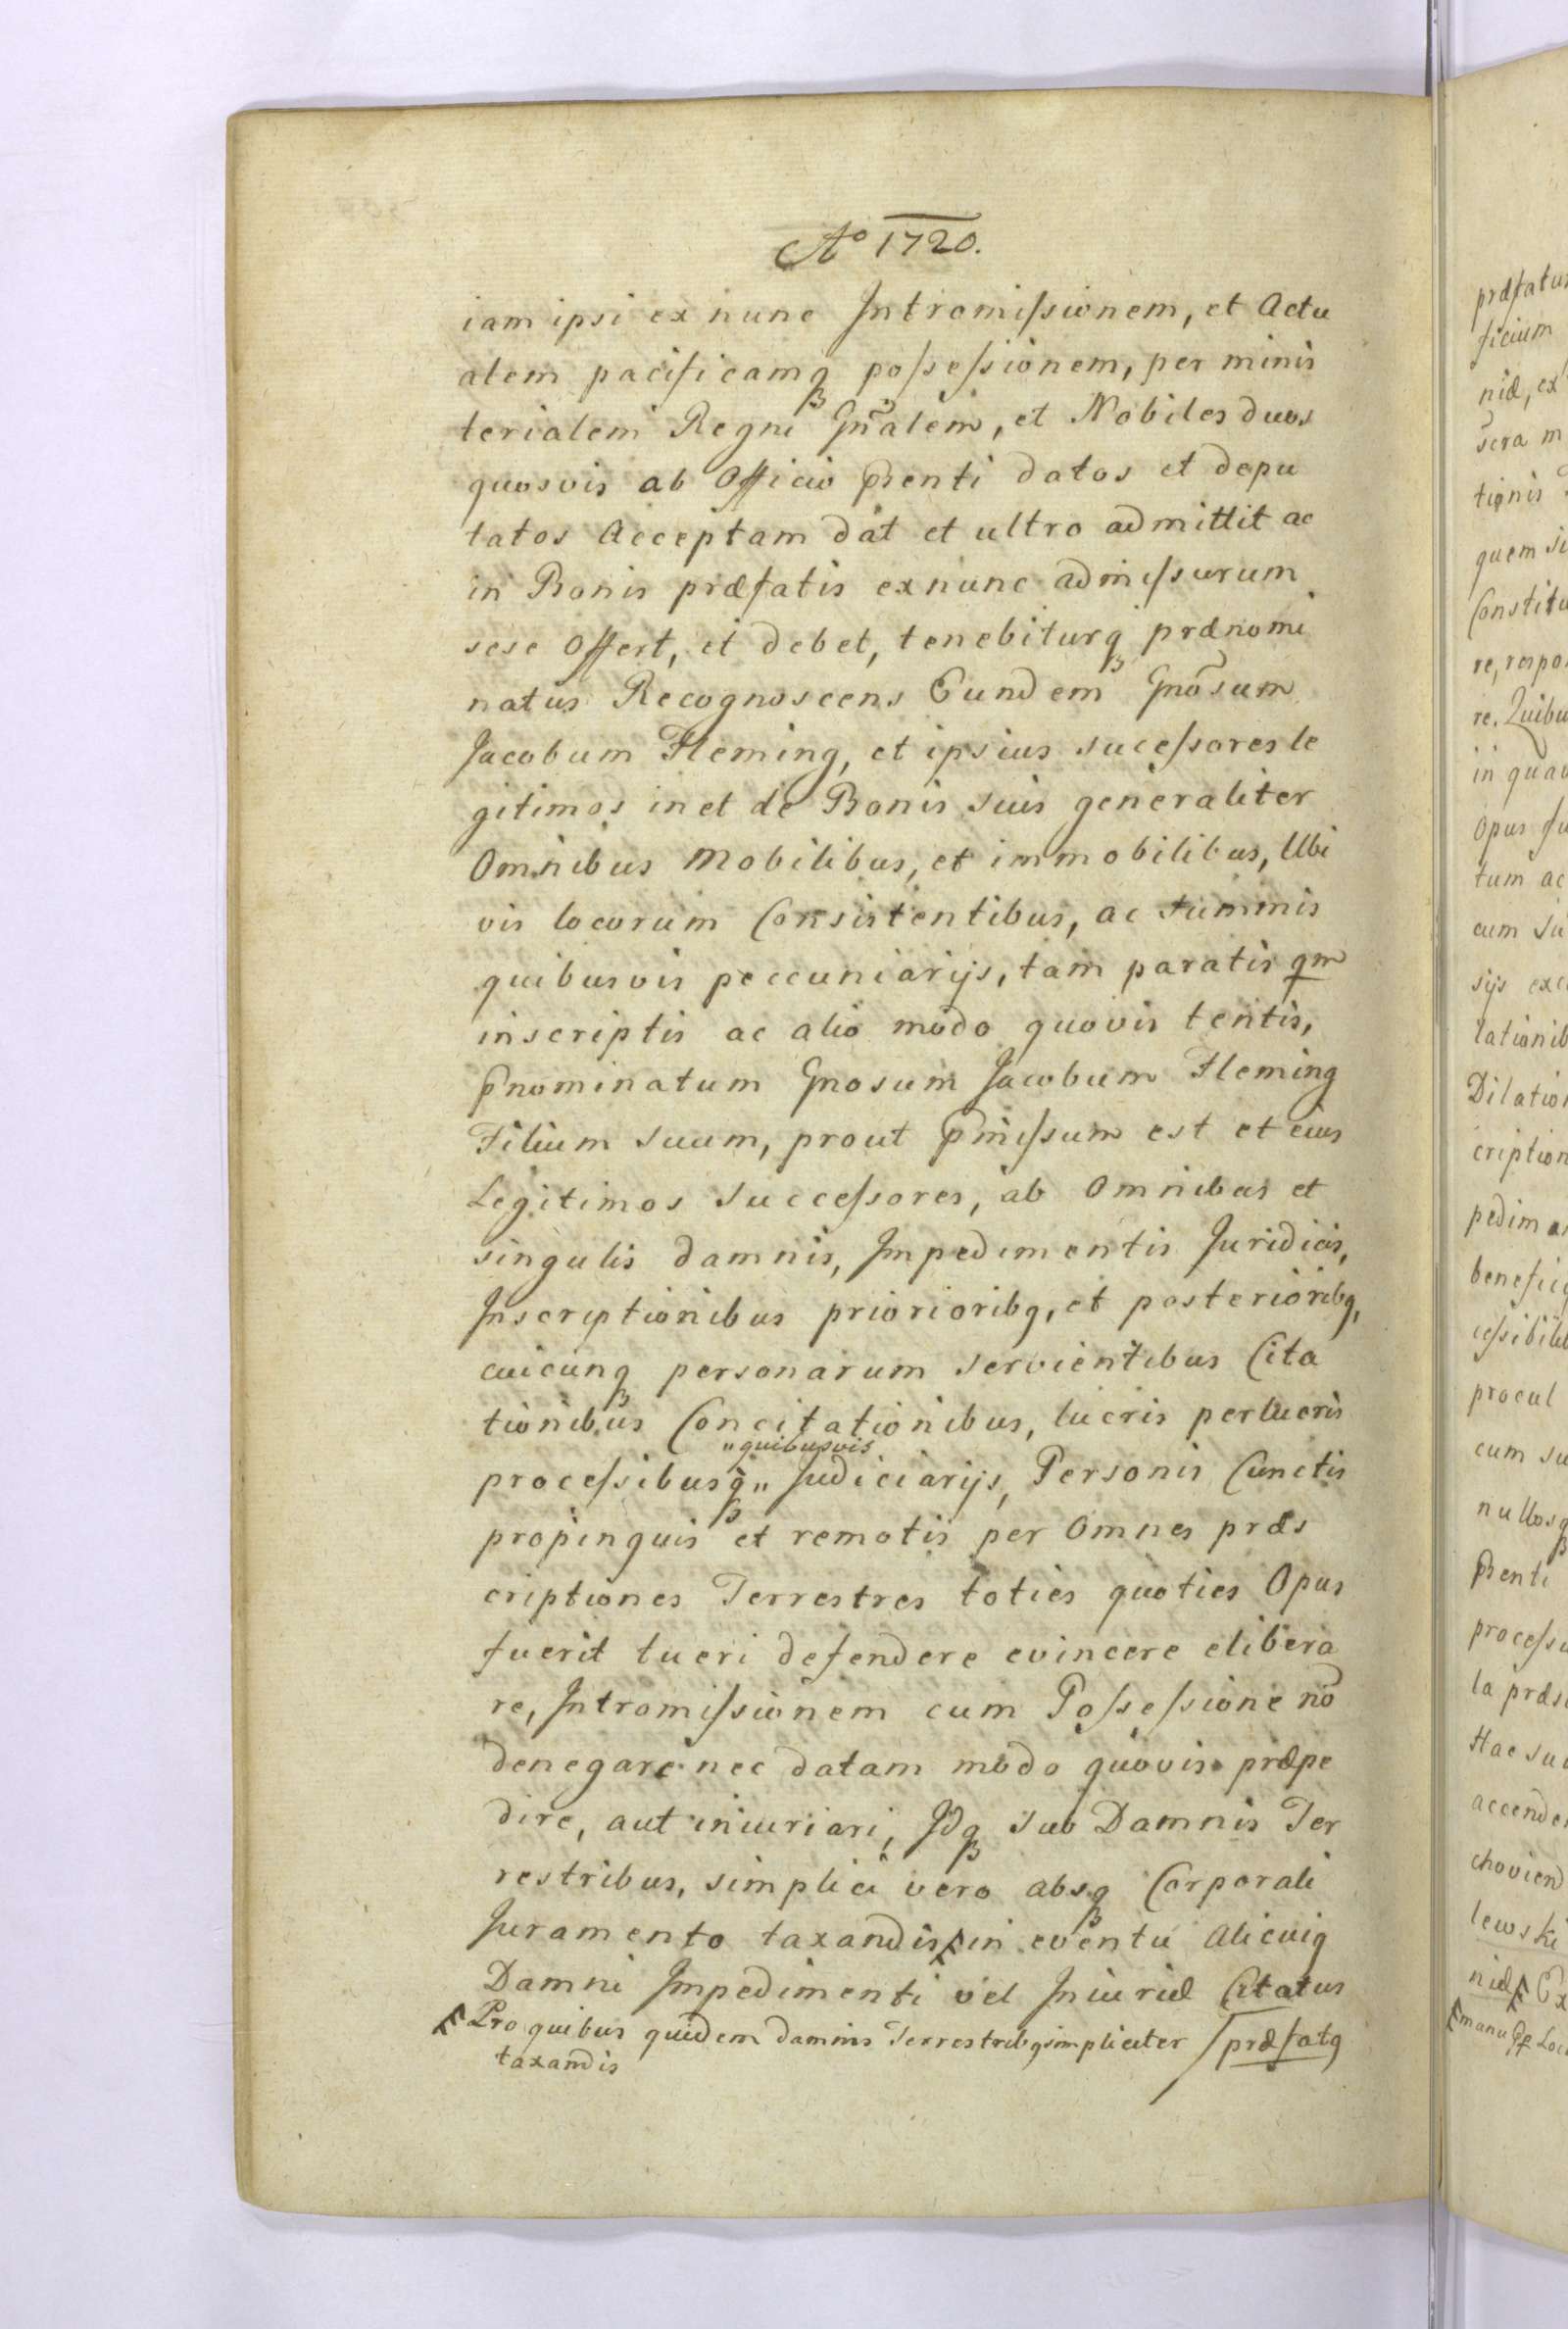 Ao 1720.
iam ipsi ex nunc Intromissionem, et Actu
alem pacificamq possessionem, per minis
terialem Regni Gñalem, et Nobiles duos
quosvis ab Officio Pñenti datos et depu
tatos Acceptam dat et ultro admittit ac
in Bonis præfatis ex nunc admissurum
sese Offert, et debet, tenebiturq prænomi
natus Recognoscens Eundem Gnõsum
Jacobum Fleming, et ipsius sucessores le
gitimos in et de Bonis suis generaliter
Omnibus Mobilibus, et immobilibus, Ubi
vis locorum Consistentibus, ac summis
quibusvis peccuniarijs, tam paratis qm
inscriptis ac alio modo quovis tentis,
Pnominatum Gnosum Jacobum Fleming
Filium suum, prout Pmissum est et eius
Legitimos Successores, ab Omnibus et
singulis damnis, Impedimentis Juridicis,
Inscriptionibus priorioribq, et posterioribq,
cuicunq personarum servientibus Cita
tionibus Concitationibus, lucris perlucris
"quibusvis
processibusq" Judiciarijs, Personis Cunctis
propinquis et remotis per Omnes præs
criptiones Terrestres toties quoties Opus
fuerit tueri defendere evincere elibera
re, Intromissionem cum Possessione nō
denegare nec datam modo quovis præpe
dire, aut iniuriari, Idq sub Damnis Ter
restribus, simplici vero absq Corporali
Juramento taxandis in eventu Alicuiq
Damni Impedimenti vel Iniuriæ Citatus
Pro quibus quidem damnis Terrestribq simpliciter præfatq
taxandis
præfatus
ficium
niæ, ex
tionis
quem
re.
in
Opus
tum ac
cum
sijs
Dilation
cription
procul
cum
Pñenti
la
Hac
lewski
manu